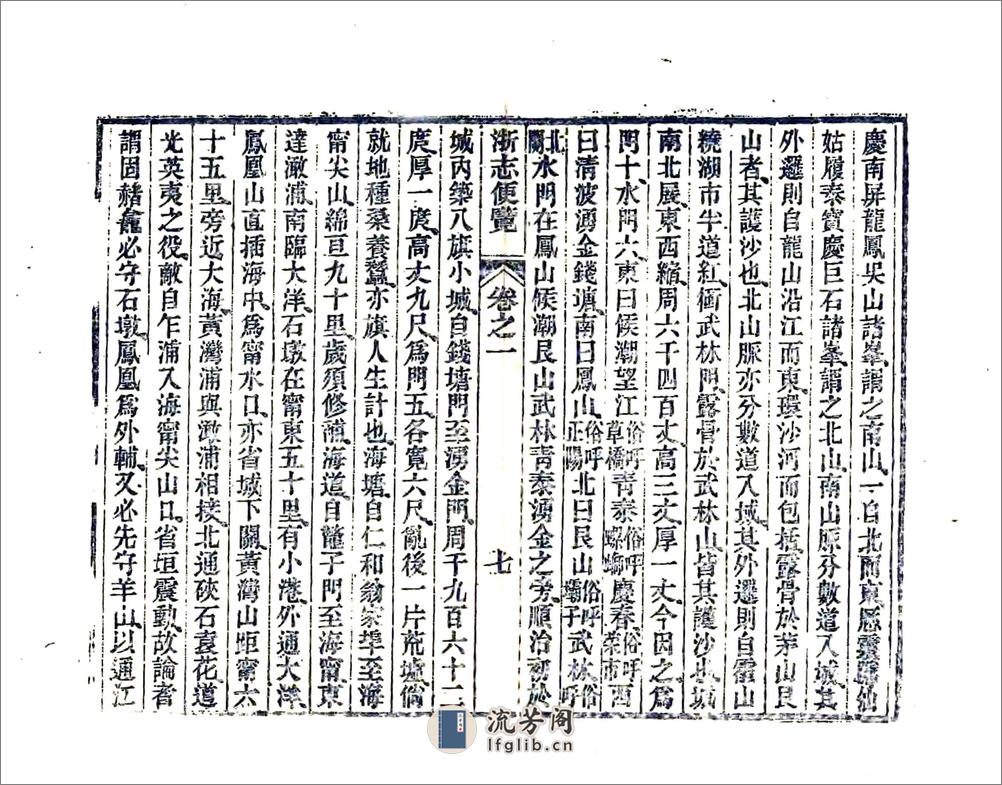 慶南屏龍鳳吳山諸峯謂之南山一自北而東歷靈隱仙
姑履泰寶慶巨石諸峯謂之北山南山脈分數道入城其
外邐則自龍山沿江而東環沙河而包括露骨於茅山艮
山者其護沙也北山脈亦分數道入城其外邐則自霍山
繞湖市半道紅衝武林門露骨於武林山皆其護沙也城
南北展東西縮周六千四百丈高三丈厚一丈今因之爲
門十水門六東曰候潮望江俗呼草橋青泰俗呼螺螄慶春俗呼菜市西
曰清波湧金錢塘南曰鳳山俗呼正陽北曰艮山俗呼壩子武林俗呼
北關水門在鳳山候潮艮山武林青泰湧金之旁順治初於
浙志便覽 卷之一 七
城內築八旗小城自錢塘門至湧金門周千九百六十二
庹厚一庹高丈九尺爲門五各寬六尺亂後一片荒墟倘
就地種桑養蠶亦旗人生計也海塘自仁和翁家埠至海
甯尖山綿亘九十里歲須修浦海道自鼈子門至海甯東
達澉浦南臨大洋石墩在甯東五十里有小港外通大洋
鳳凰山直插海中爲甯水口亦省城下關黃灣山距甯六
十五里旁近大海黃灣浦與澉浦相接北通硤石袁花道
光英夷之役敵自乍浦入海甯尖山口省垣震動故論者
謂固赭龕必守石墩鳳凰爲外輔又必先守羊山以通江
流芳阁
lfglib.cn